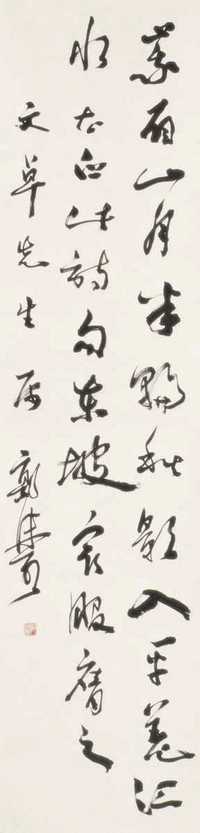 峩眉山月半輪秋影入平羌江
水太白此詩句東坡最服膺之
文卓先生属郭沫若